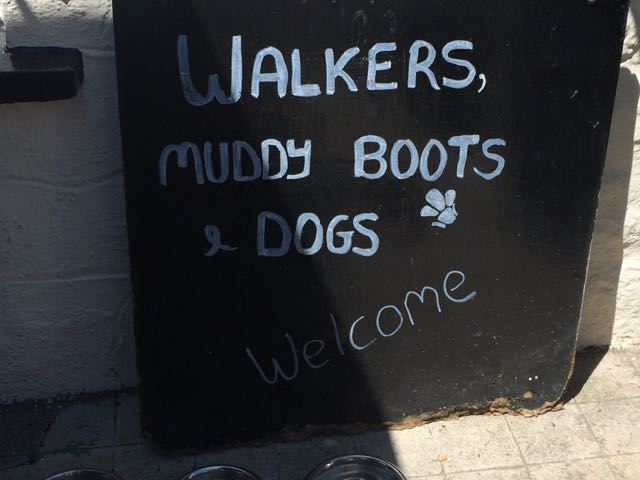 WALKERS,
MUDDY BOOTS
& DOGS
Welcome